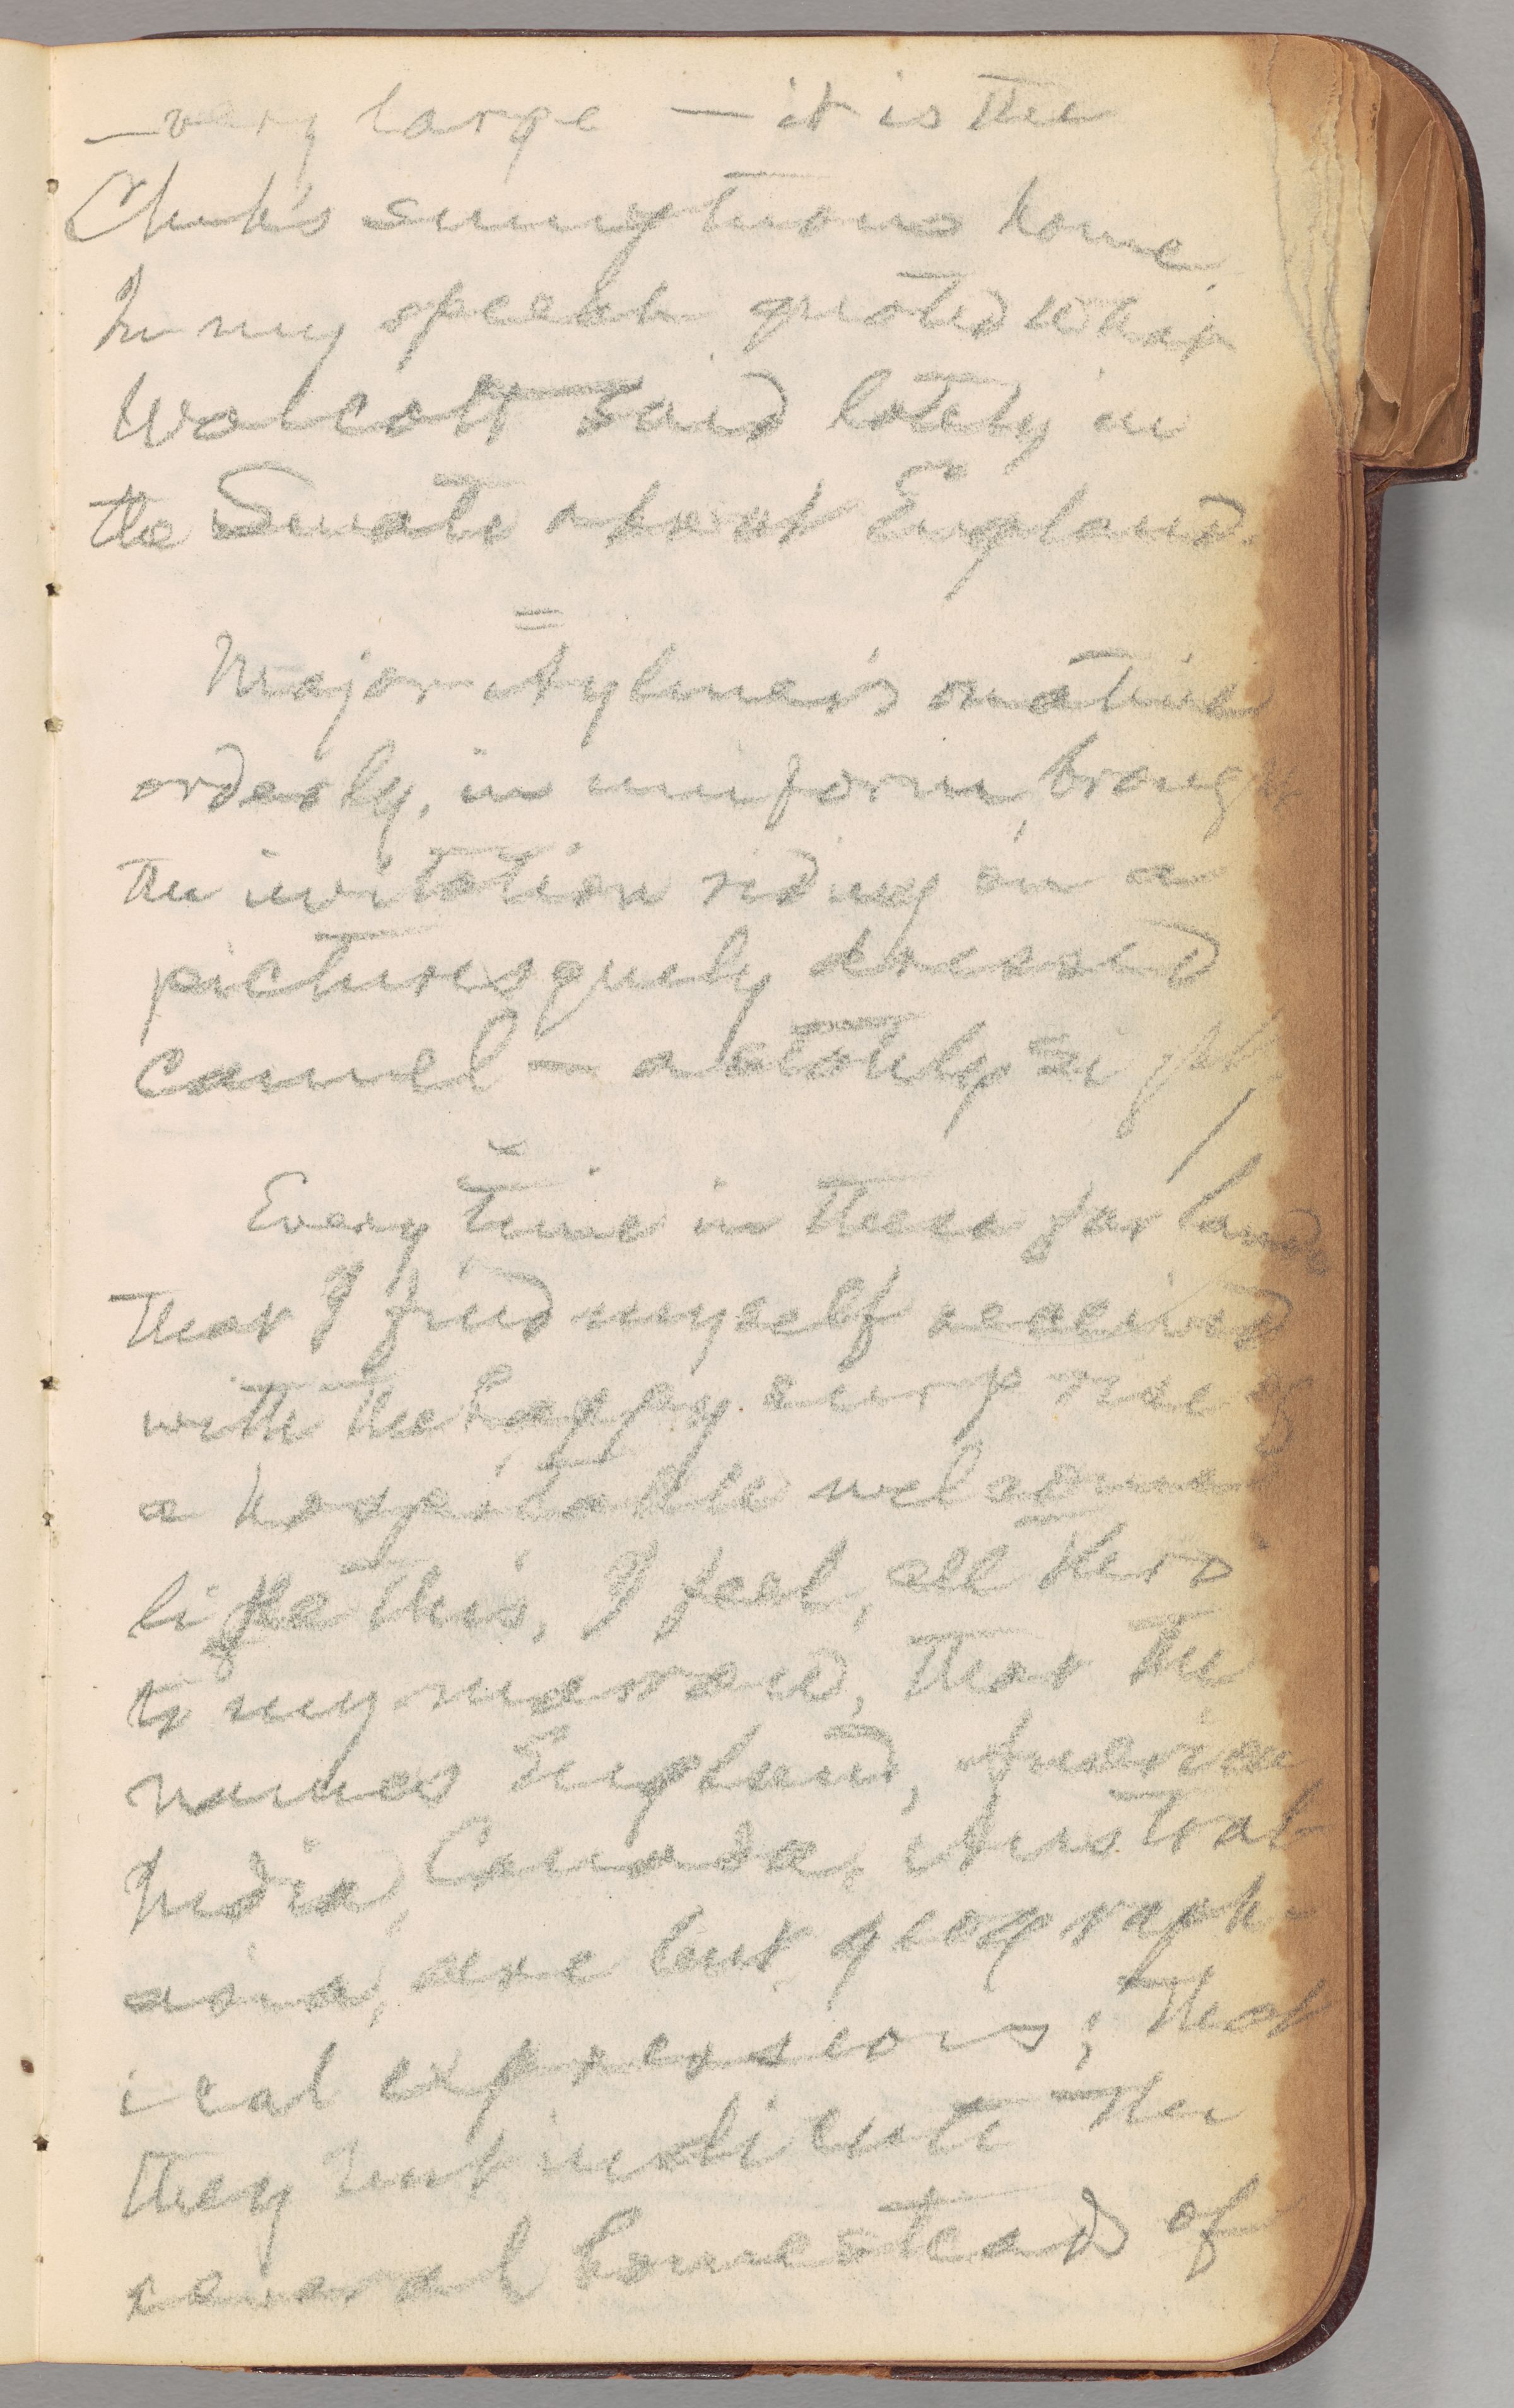 — very large — it is the
Club's sumptuous home.
In my speech quoted what
Wolcott said lately in
the Senate about England.
=
Major Aylmer's native
orderly, in uniform, brought
the invitation riding on a
picturesquely dressed
camel — a stately sight.
Every time in these far lands
that I find myself received
with the happy surprise of
a hospitable welcome
like this, I feel, all thro'
to my marrow, that the
names England, America
India, Canada, Austral-
asia, are but geograph-
ical expressions; that
they but indicate the
several homesteads of